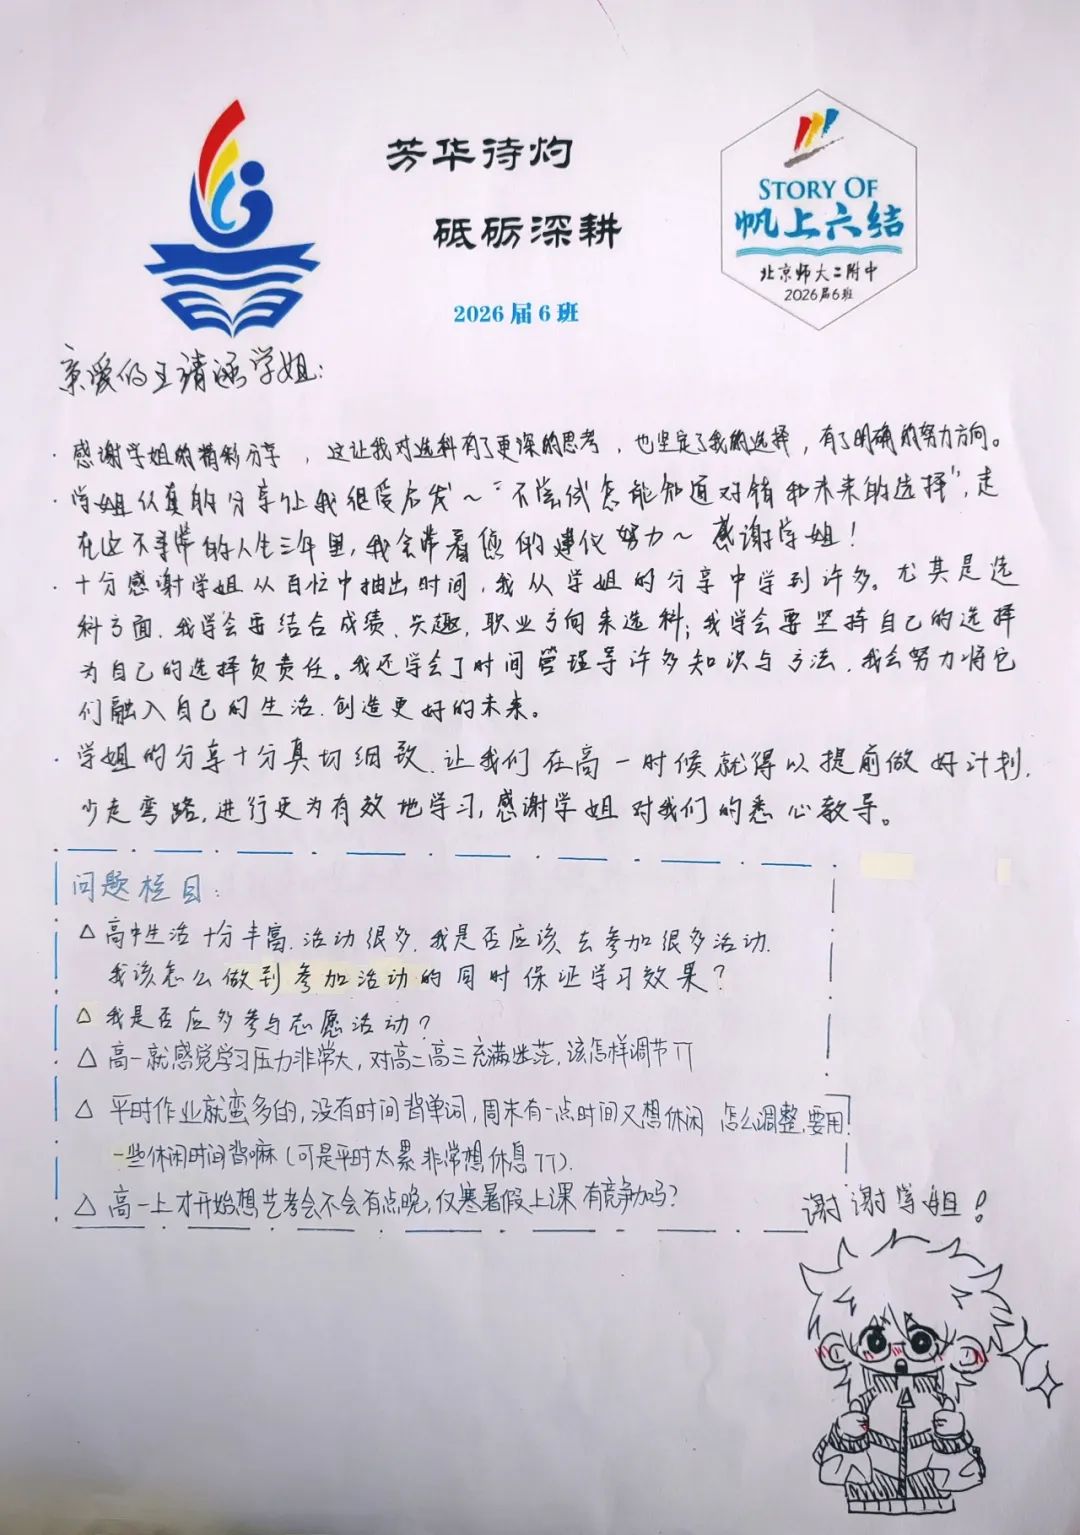 芳华待灼
砥砺深耕
2026届6班
STORY OF
帆上六结
北京师大二附中
2026届6班
亲爱的王清涵学姐:
· 感谢学姐的精彩分享,这让我对选科有了更深的思考,也坚定了我的选择,有了明确的努力方向。
· 学姐认真的分享让我很受启发~“不尝试怎能知道对错和未来的选择”,走
在这不寻常的人生三年里,我会带着您的建议努力~ 感谢学姐!
· 十分感谢学姐从百忙中抽出时间,我从学姐的分享中学到许多。尤其是选
科方面,我学会要结合成绩、兴趣、职业方向来选科;我学会要坚持自己的选择
为自己的选择负责任。我还学会了时间管理等许多知识与方法,我会努力将它
们融入自己的生活,创造更好的未来。
· 学姐的分享十分真切细致,让我们在高一时候就得以提前做好计划,
少走弯路,进行更为有效地学习,感谢学姐对我们的悉心教导。
问题栏目:
△ 高中生活十分丰富,活动很多,我是否应该去参加很多活动,
我该怎么做到参加活动的同时保证学习效果?
△ 我是否应多参与志愿活动?
△ 高一就感觉学习压力非常大,对高二高三充满迷茫,该怎样调节TT
△ 平时作业就蛮多的,没有时间背单词,周末有一点时间又想休闲 怎么调整,要用
一些休闲时间背嘛(可是平时太累非常想休息TT).
△ 高一上才开始想艺考会不会有点晚,仅寒暑假上课有竞争力吗?
谢谢学姐!